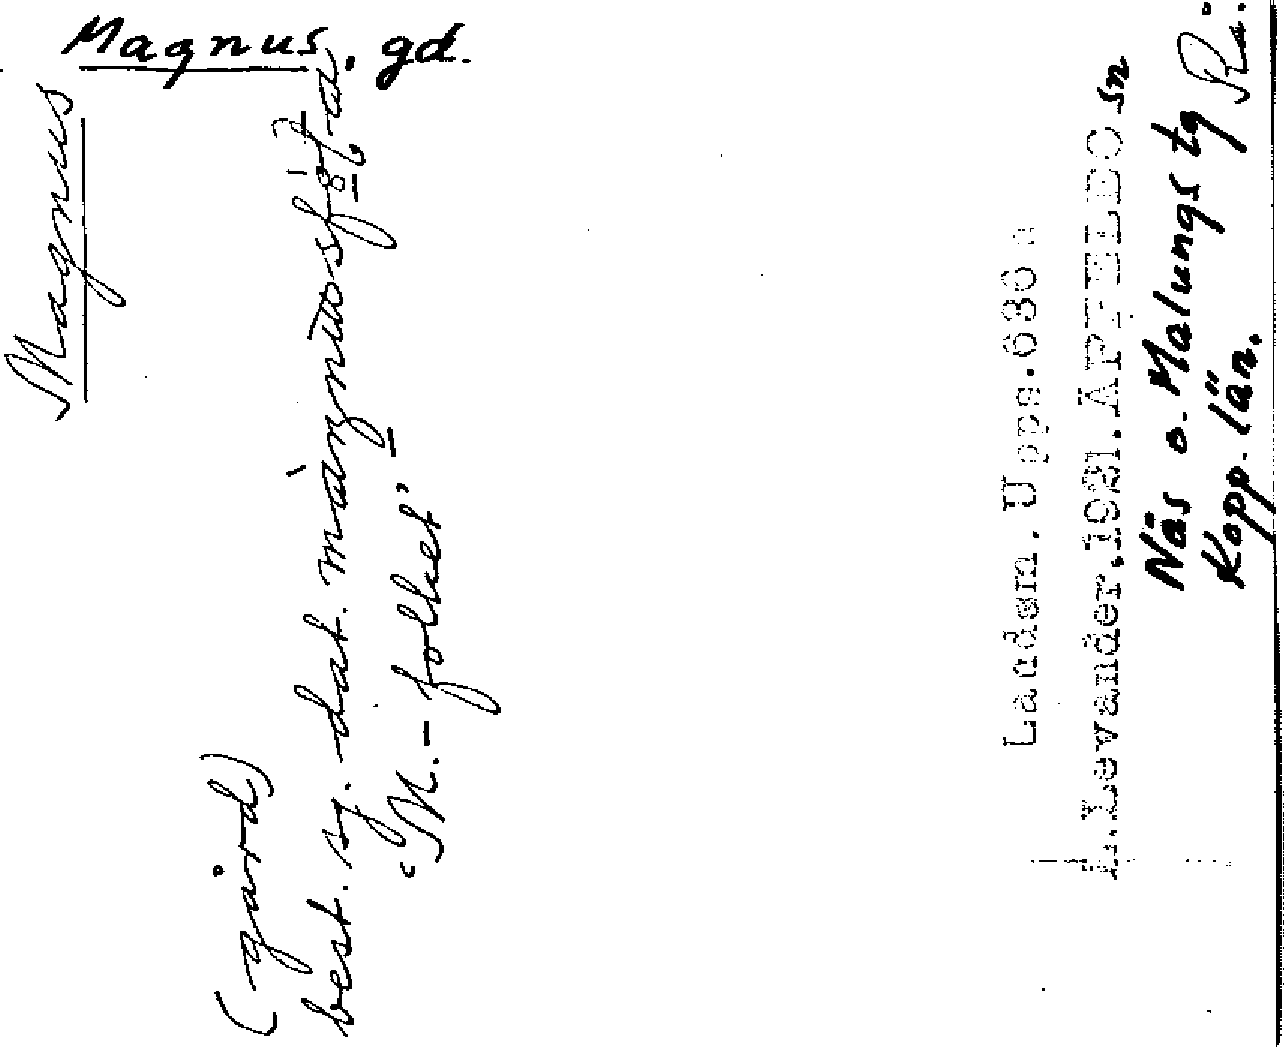 Magnus, gd.
Magnus
(gård)
best. sj. dat.
"M.-folket"
Landsm. Upps. 636
L. Levander. 1921. ÄPPELBO sn
Näs o. Malungs tg
Kopp. län.